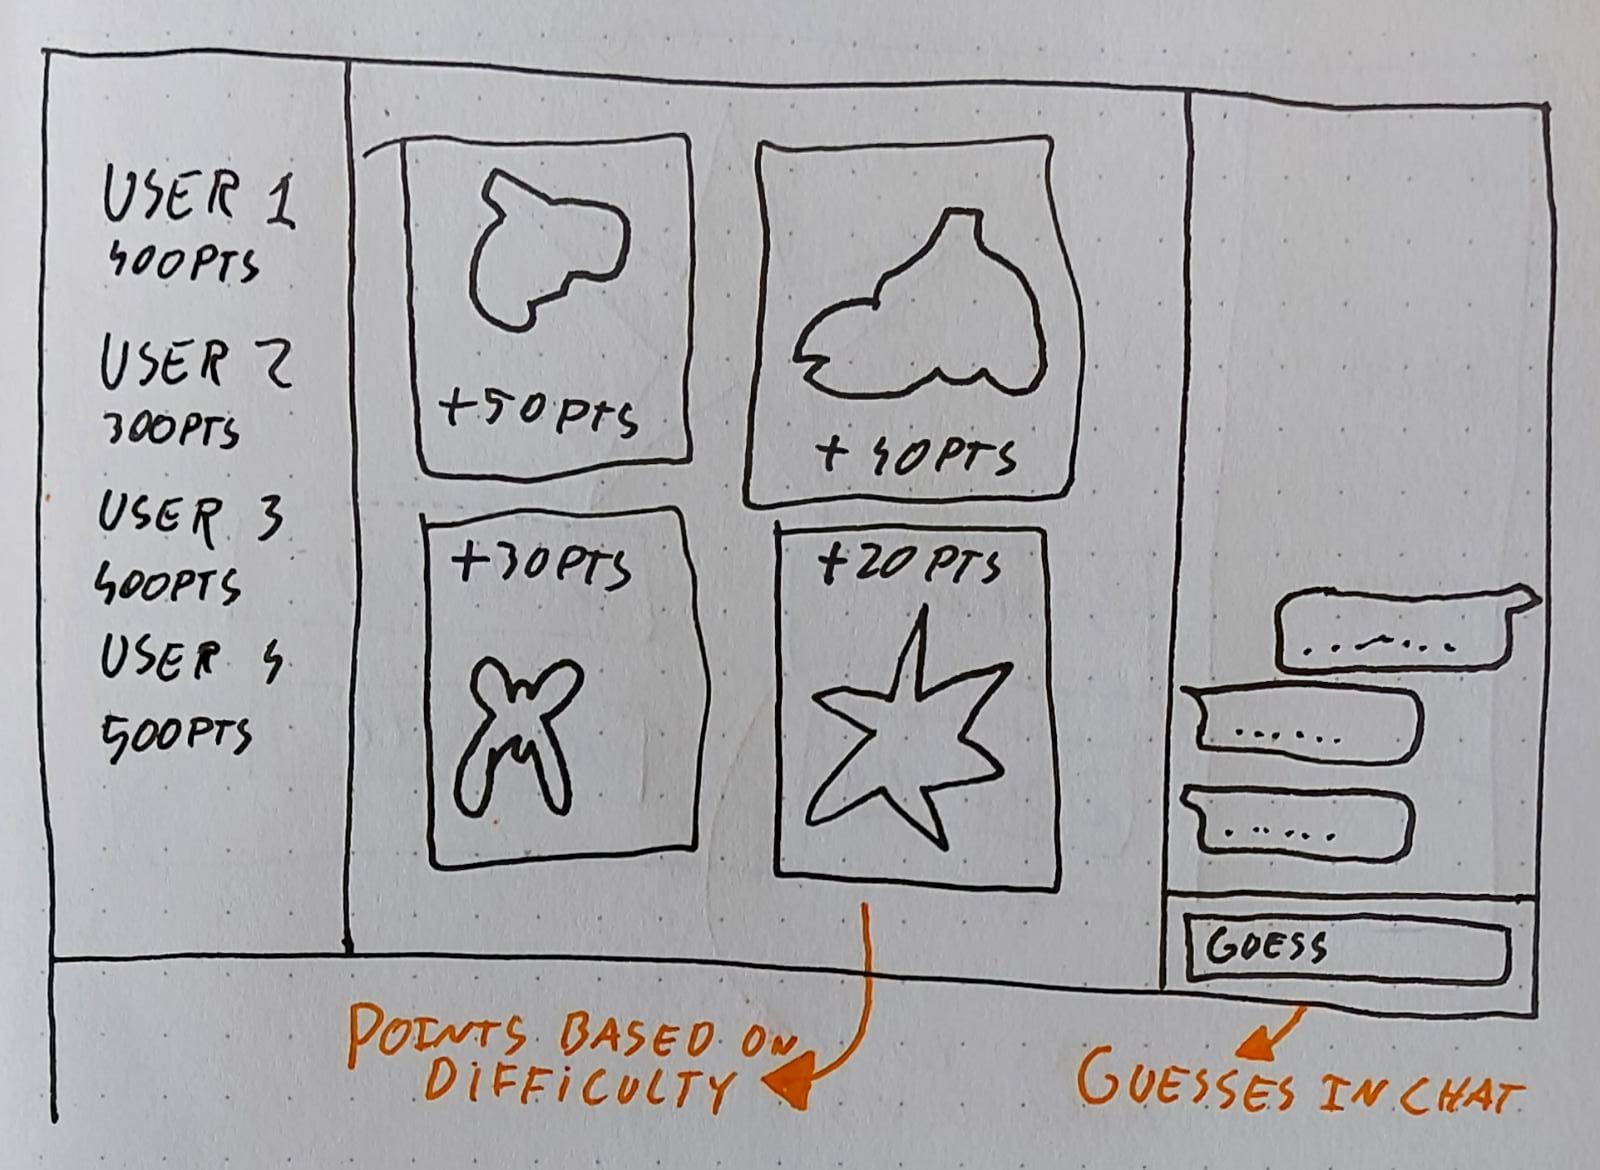 USER 1
400PTS
USER 2
300PTS
USER 3
400PTS
USER 4
500PTS
+50PTS
+40PTS
+30PTS
+20PTS
GUESS
POINTS BASED ON
DIFFICULTY
GUESSES IN CHAT